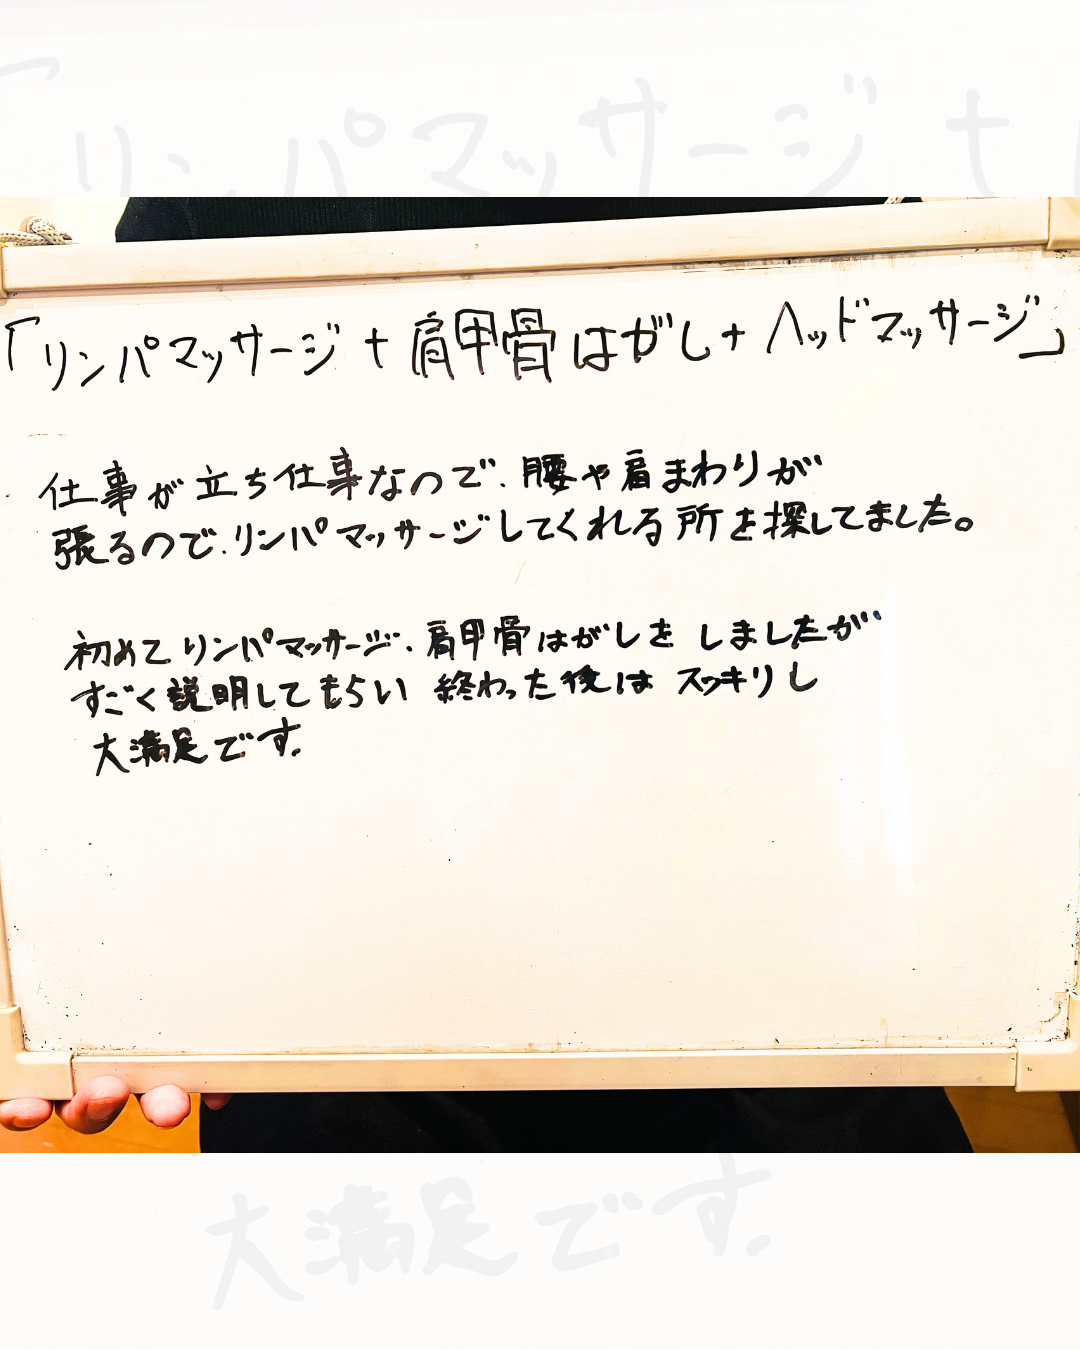 「リンパマッサージ+肩甲骨はがし+ヘッドマッサージ」
仕事が立ち仕事なので、腰や肩まわりが
張るので、リンパマッサージしてくれる所を探してました。
初めてリンパマッサージ、肩甲骨はがしをしましたが
すごく説明してもらい終わった後はスッキリし
大満足です。